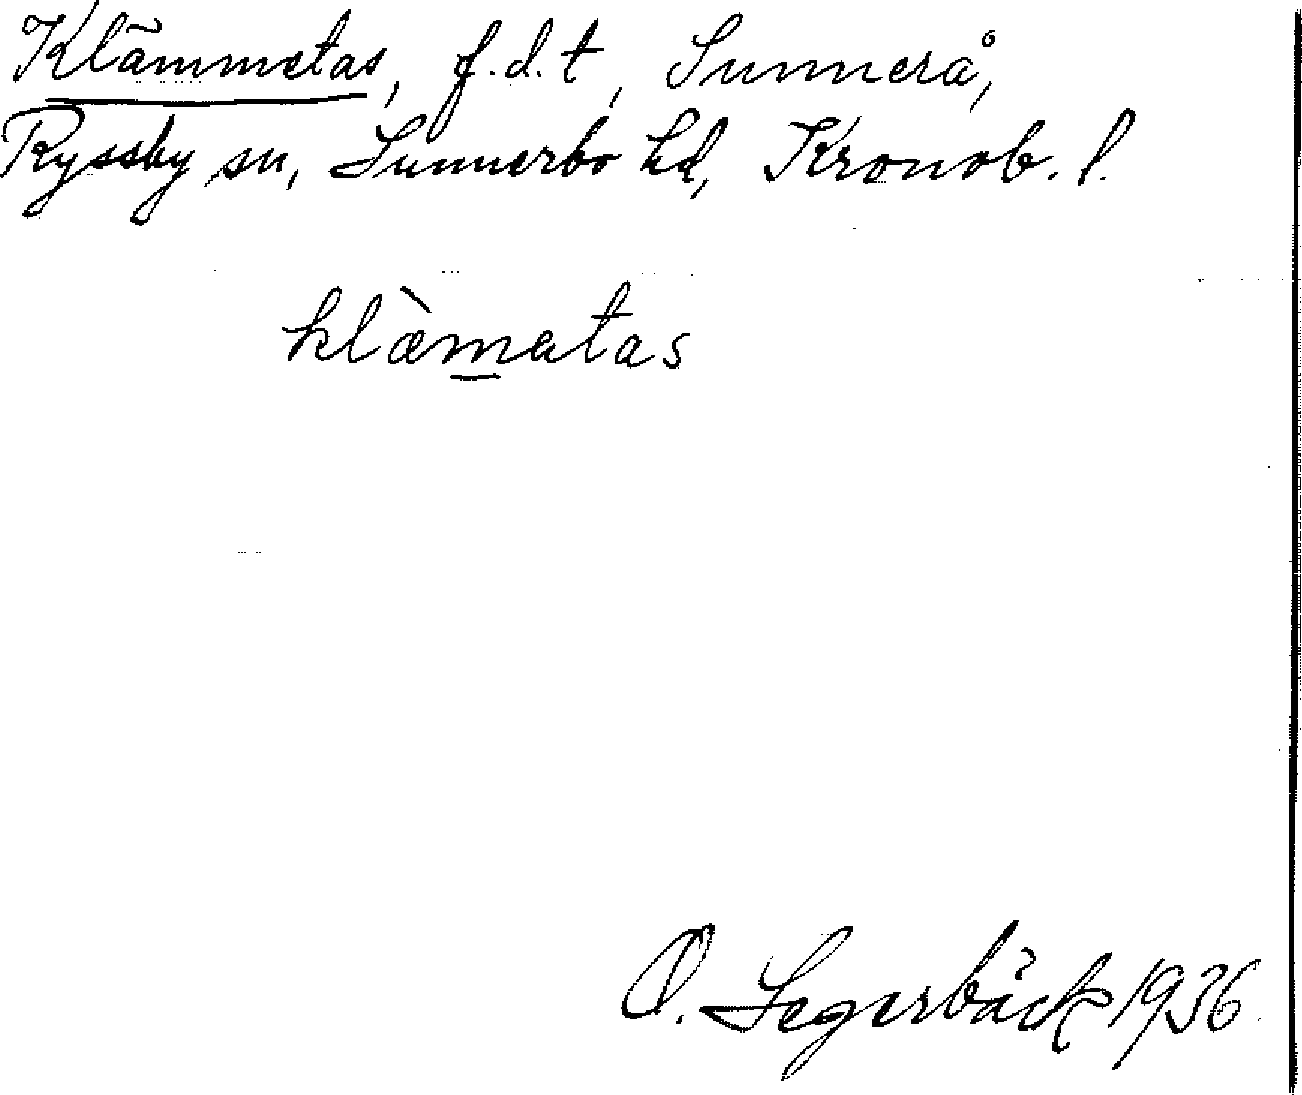 Klämmetas, f.d.t, Sunnerå,
Ryssby sn, Sunnerbo hd, Kronob. l.
klæ̀m̲atas
O. Segerbäck 1936